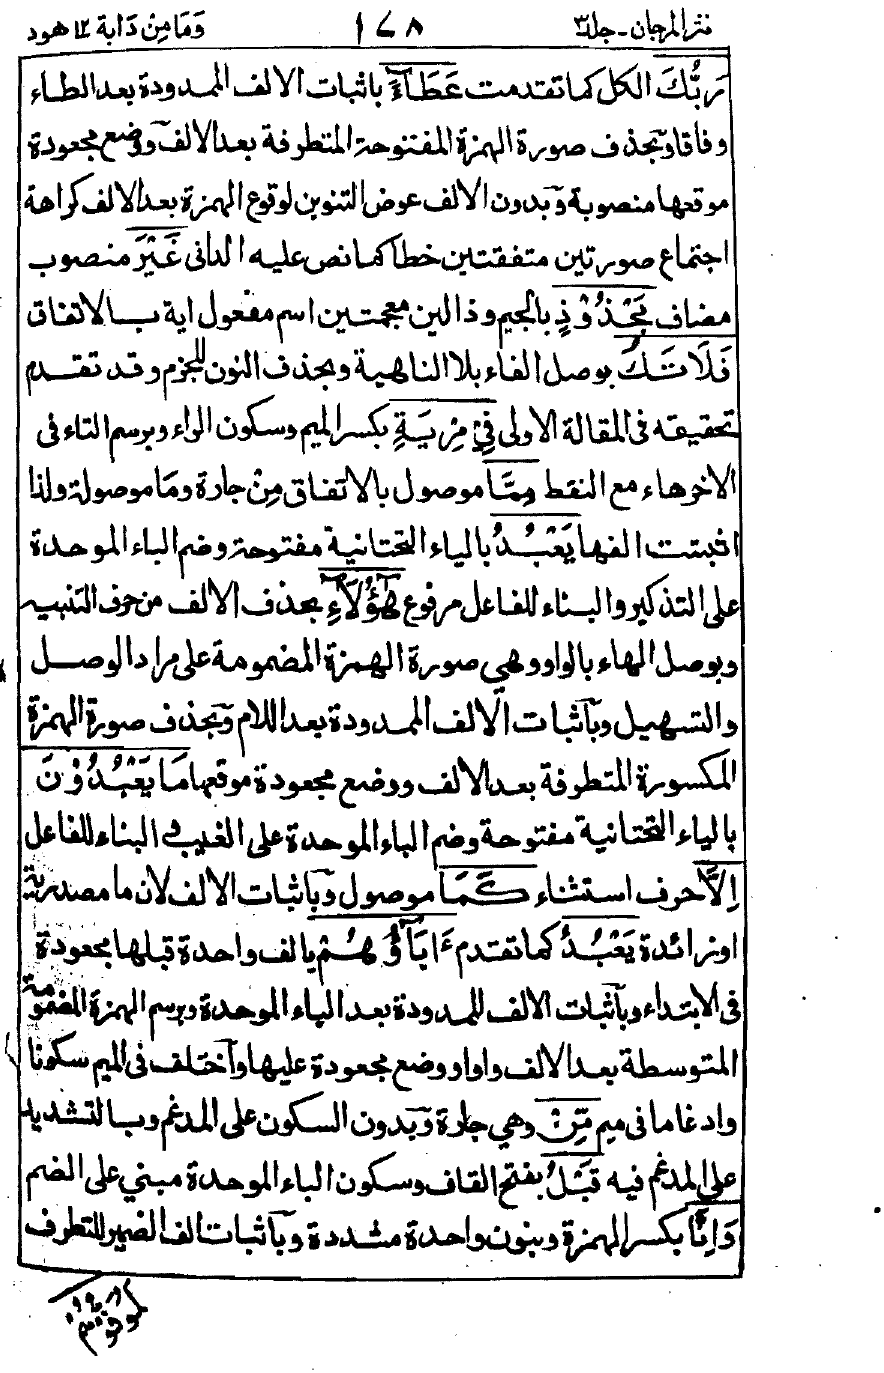 نثر المرجان - جلد ٣ ١٧٨ وَمَا مِنْ دَابة ١٢ هود
رَبُّكَ الكل كما تقدمت عَطَاءً باثبات الالف الممدودة بعد الطاء
وفاقا وبحذف صورة الهمزة المفتوحة المتطرفة بعد الالف ووضع مجعودة
موقعها منصوبة وبدون الالف عوض التنوين لوقوع الهمزة بعد الالف كراهة
اجتماع صورتين متفقتين خطا كما نص عليه الدانى غَيْرَ منصوب
مضاف مَجْذُوْذٍ بالجيم وذالين معجمتين اسم مفعول اية بالاتفاق
فَلَا تَكُ بوصل الفاء بلا الناهية وبحذف النون للجزم وقد تقدم
تحقيقه فى المقالة الاولى فِيْ مِرْيَةٍ بكسر الميم وسكون الراء وبرسم التاء فى
الاخر هاء مع النقط مِمَّا موصول بالاتفاق مِنْ جارة ومَا موصولة ولذا
اثبتت الفها يَعْبُدُ بالياء التحتانية مفتوحة وضم الباء الموحدة
على التذكير والبناء للفاعل مرفوع هٰٓؤُلَآءِ بحذف الالف من حرف التنبيه
وبوصل الهاء بالواو وهي صورة الهمزة المضمومة على مراد الوصل
والتسهيل وبآثبات الالف الممدودة بعد اللام وبحذف صورة الهمزة
المكسورة المتطرفة بعد الالف ووضع مجعودة موقعها مَا يَعْبُدُوْنَ
بالياء التحتانية مفتوحة وضم الباء الموحدة على الغيب والبناء للفاعل
اِلَّا حرف استثناء كَمَا موصول وبآثبات الالف لان ما مصدرية
او زائدة يَعْبُدُ كما تقدم ءَابَآؤُهُمْ بالف واحدة قبلها مجعودة
فى الابتداء وبآثبات الالف الممدودة بعد الباء الموحدة وبرسم الهمزة المضمومة
المتوسطة بعد الالف واوا ووضع مجعودة عليها وآختلف فى الميم سكونا
وادغاما فى ميم مِّنْ وهي جارة وبدون السكون على المدغم وبالتشديد
على المدغم فيه قَبْلُ بفتح القاف وسكون الباء الموحدة مبني على الضم
وَاِنَّا بكسر الهمزة وبنون واحدة مشددة وبآثبات الف الضمير للتطرف